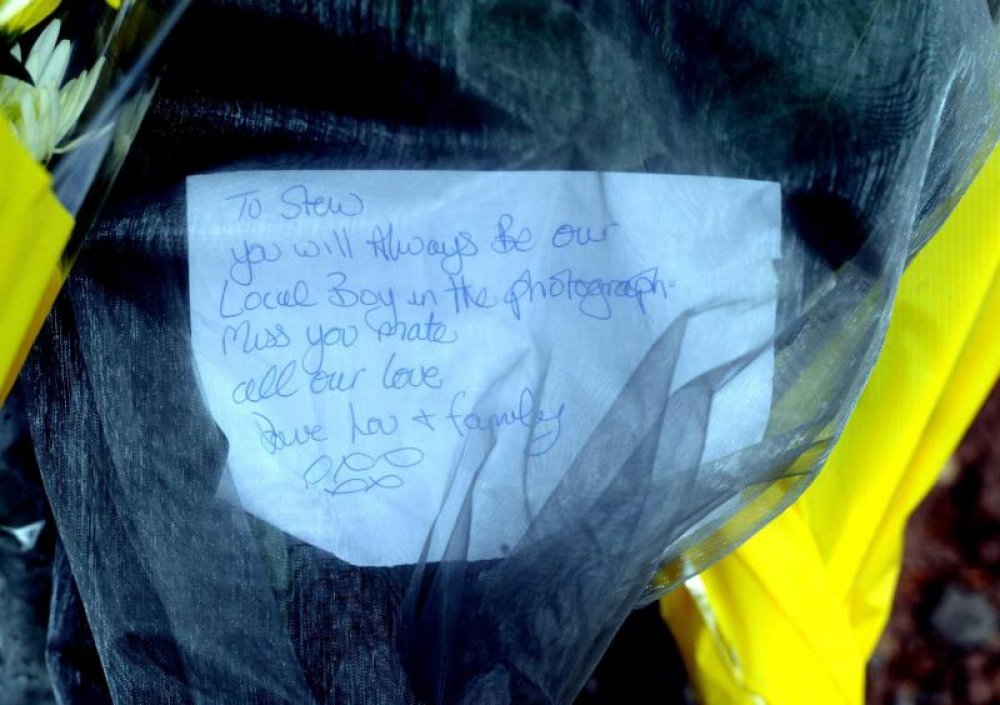 To Stew
you will Always Be our
Local Boy in the photograph.
Miss you mate
all our love
Dave Lou & family